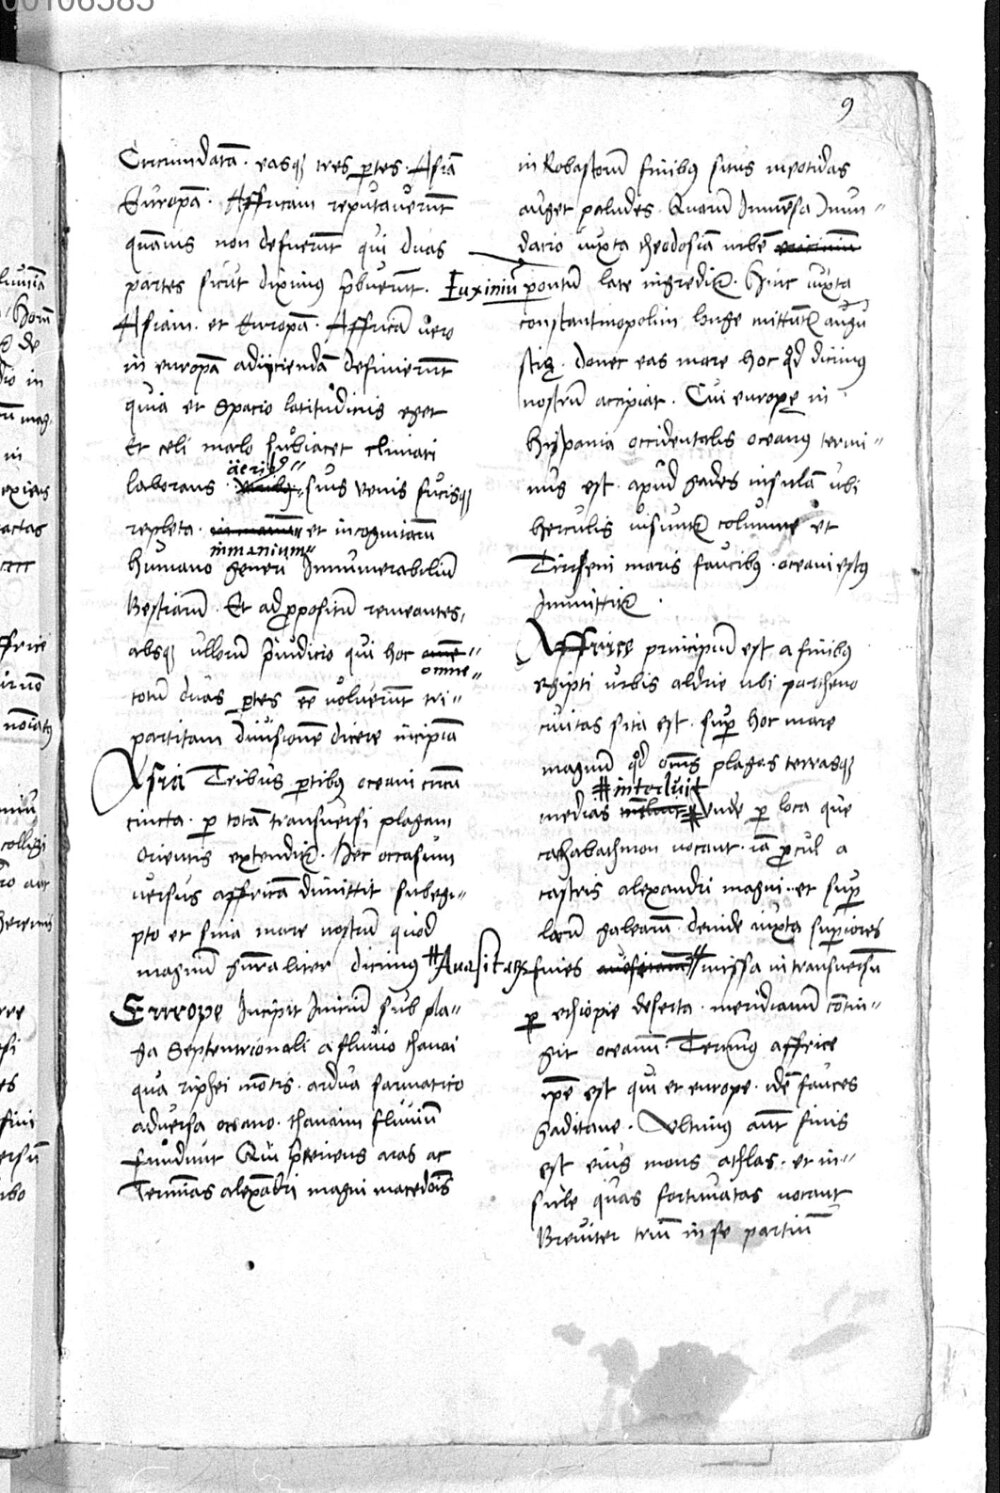 00106585
9
Circumdatā · easq; tres ptes · Asiā
Europā · Affricam reputaverūt
quāmis non defuerūt qui duas
partes sicut diximus pͬbuerūt ·
Asiam · et Europā · Affricā vero
in europā adiiciendā definierūt
quia et spacio latitudinis eget
Et celi malo subiacet climati
aeris
laborans · suis venis fucisq;
repleta · et incognitarū
inmanium
humano generi Innumerabiliū
Bestiarū · Et ad ꝓpositū remeantes,
absq; ullorū pͬiudicio qui hoc ome
omne
totū duas ptes eē voluerūt tri-
partitam divisionē dicere incipiā
Asia Tribus ptibus oceani circū
cincta · p totā transversi plagam
orientis extenditur · Hec occasum
versus affricā dimittit sub egi-
pto et siria mare nostrū quod
magnū gn̄raliter dicimus
Eurrope Incipit Initiū sub pla-
ga septentrionali a fluvio thanai
qua riphei mōtis · ardua sarmatico
adversa oceano · thanaim fluviū
fundunt Qui pͬteriens aras ac
Terminas alexādri magni macedōis
in Robascorū finibus situs meotidas
auget paludes · Quarū Immēsa Inun-
datio iuxta theodosiā urbē
Euxiniū pontū late ingreditur · Hinc iuxta
constantinopolim longe mittūtur augu
stię · donec eas mare hoc qd dicimus
nostrū accipiat · Cui europę in
hispania occidentalis oceanus termi-
nus est · apud gades insulā ubi
herculis visuntur columne et
Tirreni maris faucibus · oceani estus
Immittitur ·
Affrice principiū est a finibus
egipti urbis aldrie ubi partheno
civitas sita est · sup hoc mare
magnū qd om̄s plagas terrasq;
# intorluit
medias # Unde p loca que
cathabathmon vocant · iā ꝓcul a
castris alexandri magni · et sup
lacū galearū · deinde iuxta supiores
# Auasitarꝫ fines missa in transversū
p ethiopie deserta · meridianū contin-
git oceanū · Termin⁹ affrice
ipē est qui et europe · idē fauces
gaditane · Ultimus aūt finis
est eius mons athlas · et in-
sule quas fortunatas vocant
Breviter triū in se partiū